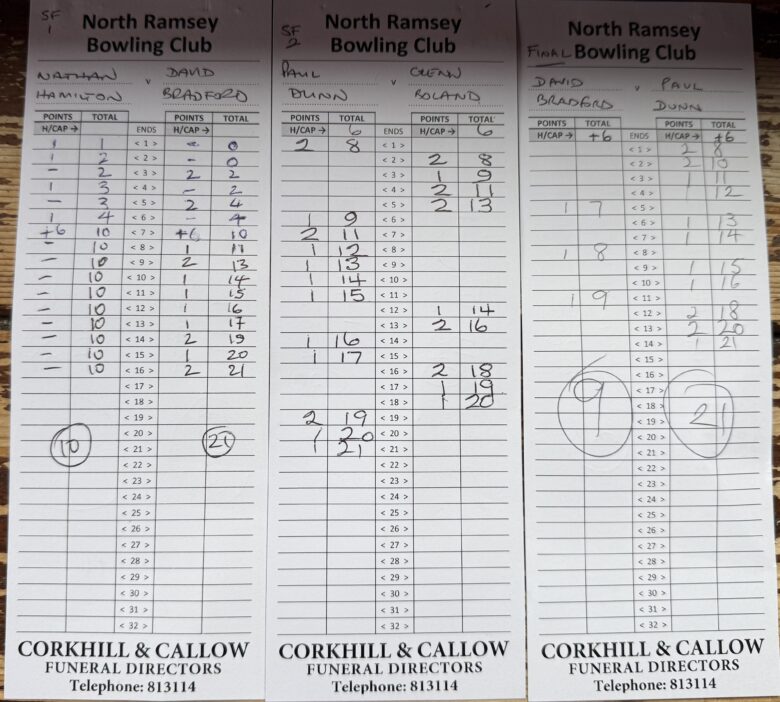 SF
1
North Ramsey
Bowling Club
NATHAN v DAVID
HAMILTON BRADFORD
POINTS TOTAL POINTS TOTAL
H/CAP → ENDS H/CAP →
1 1 < 1 > - 0
1 2 < 2 > - 0
- 2 < 3 > 2 2
1 3 < 4 > - 2
- 3 < 5 > 2 4
1 4 < 6 > - 4
+6 10 < 7 > +6 10
- 10 < 8 > 1 11
- 10 < 9 > 2 13
- 10 < 10 > 1 14
- 10 < 11 > 1 15
- 10 < 12 > 1 16
- 10 < 13 > 1 17
- 10 < 14 > 2 19
- 10 < 15 > 1 20
- 10 < 16 > 2 21
< 17 >
< 18 >
< 19 >
< 20 >
10 < 21 > 21
< 22 >
< 23 >
< 24 >
< 25 >
< 26 >
< 27 >
< 28 >
< 29 >
< 30 >
< 31 >
< 32 >
CORKHILL & CALLOW
FUNERAL DIRECTORS
Telephone: 813114
SF
2
North Ramsey
Bowling Club
PAUL v GLENN
DUNN BOLAND
POINTS TOTAL POINTS TOTAL
H/CAP → 6 ENDS H/CAP → 6
2 8 < 1 >
< 2 > 2 8
< 3 > 1 9
< 4 > 2 11
< 5 > 2 13
1 9 < 6 >
2 11 < 7 >
1 12 < 8 >
1 13 < 9 >
1 14 < 10 >
1 15 < 11 >
< 12 > 1 14
< 13 > 2 16
1 16 < 14 >
1 17 < 15 >
< 16 > 2 18
< 17 > 1 19
< 18 > 1 20
2 19 < 19 >
1 20 < 20 >
1 21 < 21 >
< 22 >
< 23 >
< 24 >
< 25 >
< 26 >
< 27 >
< 28 >
< 29 >
< 30 >
< 31 >
< 32 >
CORKHILL & CALLOW
FUNERAL DIRECTORS
Telephone: 813114
North Ramsey
FINAL Bowling Club
DAVID v PAUL
BRADFORD DUNN
POINTS TOTAL POINTS TOTAL
H/CAP → +6 ENDS H/CAP → +6
< 1 > 2 8
< 2 > 2 10
< 3 > 1 11
< 4 > 1 12
1 7 < 5 >
< 6 > 1 13
< 7 > 1 14
1 8 < 8 >
< 9 > 1 15
< 10 > 1 16
1 9 < 11 >
< 12 > 2 18
< 13 > 2 20
< 14 > 1 21
< 15 >
< 16 >
< 17 >
9 < 18 > 21
< 19 >
< 20 >
< 21 >
< 22 >
< 23 >
< 24 >
< 25 >
< 26 >
< 27 >
< 28 >
< 29 >
< 30 >
< 31 >
< 32 >
CORKHILL & CALLOW
FUNERAL DIRECTORS
Telephone: 813114